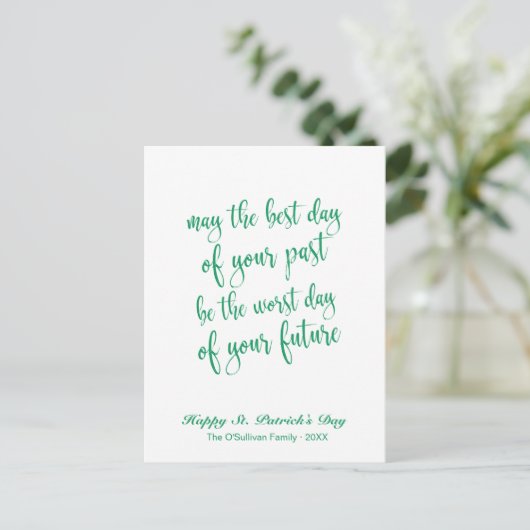 may the best day
of your past
be the worst day
of your future
Happy St. Patrick's Day
The O'Sullivan Family · 20XX